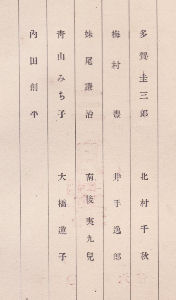 多賀圭三郎　北村千秋
梅村豊　井手逸郎
妹尾謙治　南俊夷九兒
青山みち子　大橋道子
内田創平